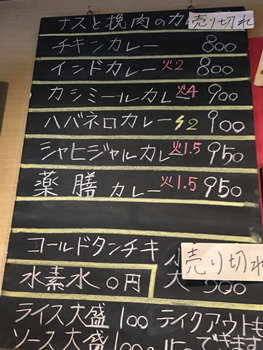 ナスと挽肉のカ 売り切れ
チキンカレー 800
インドカレー 火2 800
カシミールカレー 火4 900
ハバネロカレー 2 900
シャヒジャルカレー 火1.5 950
薬膳カレー 火1.5 950
コールドタンチキ 売り切れ
水素水 0円 大 500
ライス大盛 100 テイクアウトも
ソース大盛 150 できます